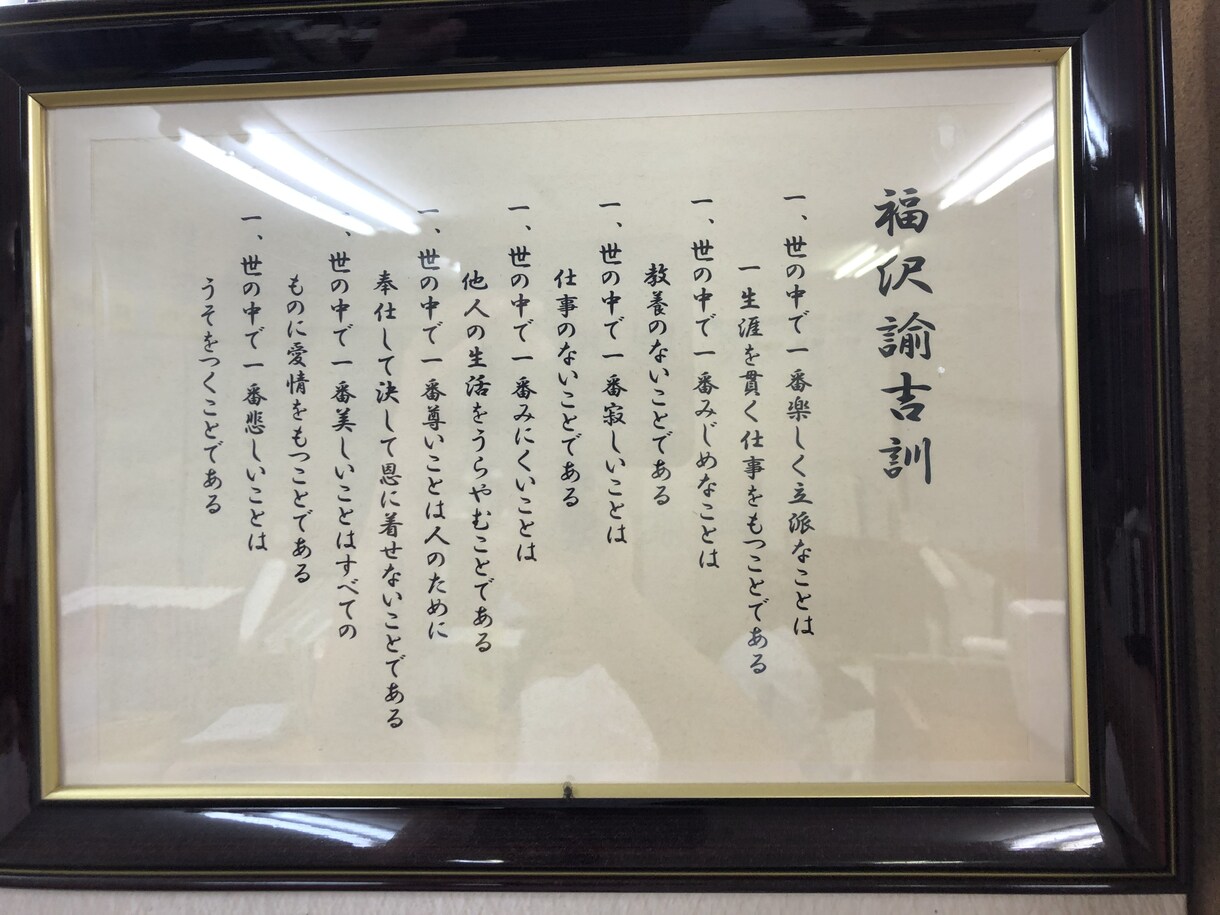 福沢諭吉訓
一、世の中で一番楽しく立派なことは
一生涯を貫く仕事をもつことである
一、世の中で一番みじめなことは
教養のないことである
一、世の中で一番寂しいことは
仕事のないことである
一、世の中で一番みにくいことは
他人の生活をうらやむことである
一、世の中で一番尊いことは人のために
奉仕して決して恩に着せないことである
一、世の中で一番美しいことはすべての
ものに愛情をもつことである
一、世の中で一番悲しいことは
うそをつくことである